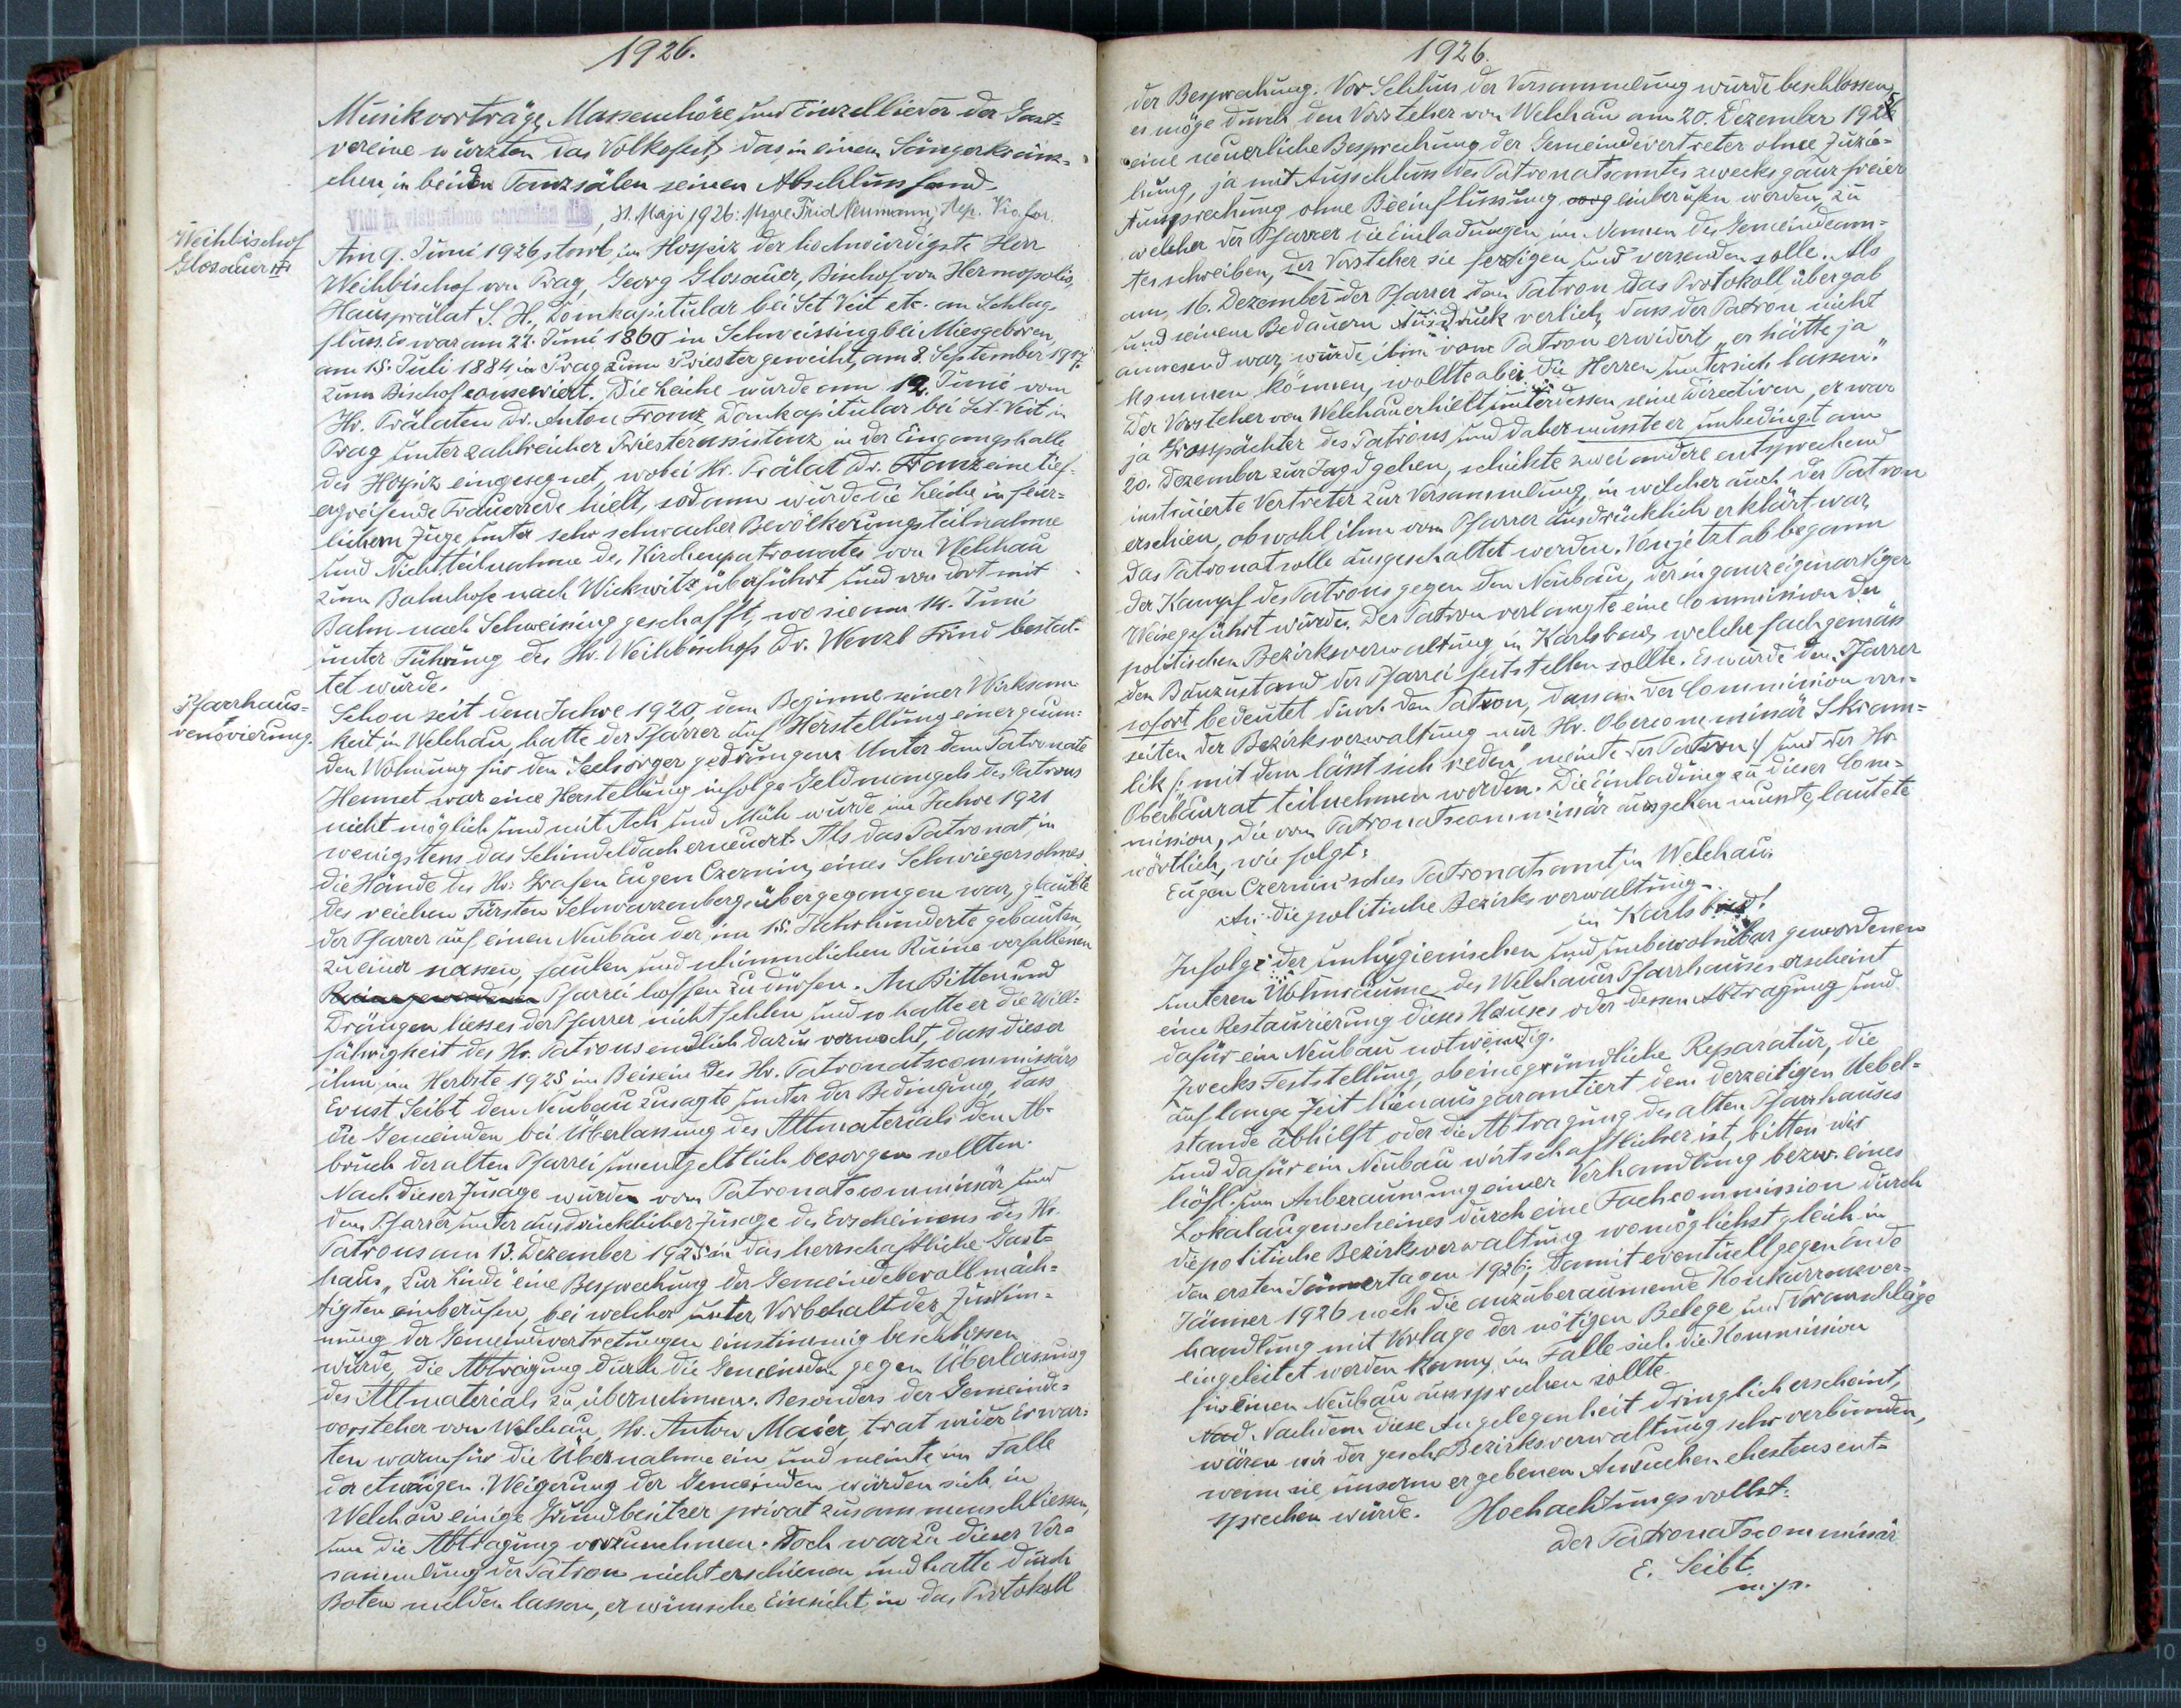 1926.
Musikvorträge, Massenchöre und Einzellieder der Gast=
vereine würzten das Volksfest, das in einem Sängerkränz=
chen in beiden Tanzsälen seinen Abschluss fand.
Vidi in visitatione canonica die 31. Maji 1926: Msgre Frid Neumann, Aep. Vic. for.
Weihbischof
Glosauer †
Am 9. Juni 1926 starb im Hospiz der hochwürdigste Herr
Weihbischof von Prag, Georg Glosauer, Bischof von Hermopolis,
Hausprälat S. H., Domkapitular bei Sct Veit etc. an Schlag-
fluss. Er war am 22. Juni 1860 in Schweissing bei Mies geboren,
am 15. Juli 1884 in Prag zum Priester geweiht, am 8. September 1917
zum Bischof consecriert. Die Leiche wurde am 12. Juni vom
Hr. Prälaten Dr. Anton Franz, Domkapitular bei Sct. Veit in
Prag unter zahlreicher Priesterassistenz in der Eingangshalle
des Hospiz eingesegnet, wobei Hr. Prälat Dr. Franz eine tief-
ergreifende Trauerrede hielt, sodann wurde die Leiche in feier=
lichem Zuge unter sehr schwacher Bevölkerungsteilnahme
und Nichtteilnahme des Kirchenpatronates von Welchau
zum Bahnhofe nach Wickwitz überführt und von dort mit
Bahn nach Schweissing geschafft, wo sie am 14. Juni
unter Führung des Hr. Weihbischofs Dr. Wenzl Frind bestat-
tet wurde.
Pfarrhaus=
renovierung.
Schon seit dem Jahre 1920, dem Beginne seiner Wirksam-
keit in Welchau, hatte der Pfarrer auf Herstellung einer gesun=
den Wohnung für den Seelsorger gedrungen. Unter dem Patronate
Hennet war eine Herstellung infolge Geldmangels des Patrons
nicht möglich und mit Ach und Müh wurde im Jahre 1921
wenigstens das Schindeldach erneuert. Als das Patronat in
die Hände des Hr. Grafen Eugen Czernin, eines Schwiegersohnes
des reichen Fürsten Schwarzenberg, übergegangen war, glaubte
der Pfarrer auf einen Neubau der im 15. Jahrhunderte gebauten,
zu einer nassen, faulen und schimmlichen Ruine verfallenen
Pfarrei hoffen zu dürfen. An Bitten und
Drängen liess es der Pfarrer nicht fehlen und so hatte er die Will=
fährigkeit des Hr. Patrons endlich dazu vermocht, dass dieser
ihm im Herbste 1925 im Beisein des Hr. Patronatscommissärs
Ernst Seibt den Neubau zusagte, unter der Bedingung, dass
die Gemeinden bei Überlassung des Altmaterials den Ab-
bruch der alten Pfarrei unentgeltlich besorgen sollten.
Nach dieser Zusage wurden vom Patronatscommissär und
dem Pfarrer unter ausdrücklicher Zusage des Erscheinens des Hr.
Patrons am 13. Dezember 1925 in das herrschaftliche Gast=
haus „Zur Linde" eine Besprechung der Gemeindebevollmäch=
tigten einberufen, bei welcher unter Vorbehalt der Zustim=
mung der Gemeindevertretungen einstimmig beschlossen
wurde, die Abtragung durch die Gemeinden gegen Überlassung
des Altmaterials zu übernehmen. Besonders der Gemeinde=
vorsteher von Welchau, Hr. Anton Maier, trat wider Erwar=
ten warm für die Übernahme ein und meinte im Falle
der etwaigen Weigerung der Gemeinden würden sich in
Welchau einige Grundbesitzer privat zusammenschliessen,
um die Abtragung vorzunehmen. Doch war zu dieser Ver=
sammlung der Patron nicht erschienen und hatte durch
Boten melden lassen, er wünsche Einsicht in das Protokoll
1926.
der Besprechung. Vor Schluss der Versammlung wurde beschlossen,
es möge durch den Vorsteher von Welchau am 20. Dezember 1925
eine neuerliche Besprechung der Gemeindevertreter ohne Zuzie=
hung, ja mit Ausschluss des Patronatsamtes zwecks ganz freier
Aussprechung ohne Beeinflussung einberufen werden, zu
welcher der Pfarrer die Einladungen im Namen des Gemeindeam=
tes schreiben, der Vorsteher sie fertigen und versenden solle. Als
am 16. Dezember der Pfarrer dem Patron das Protokoll übergab
und seinem Bedauern Ausdruck verlieh, dass der Patron nicht
anwesend war, wurde ihm vom Patron erwidert, „er hätte ja
kommen können, wollte aber die Herren unter sich lassen."
Der Vorsteher von Welchau erhielt unterdessen seine Directiven, er war
ja Grosspächter des Patrons und daher musste er unbedingt am
20. Dezember zur Jagd gehen, schickte zwei andere entsprechend
instruierte Vertreter zur Versammlung, in welcher auch der Patron
erschien, obwohl ihm vom Pfarrer ausdrücklich erklärt war,
das Patronat solle ausgeschaltet werden. Von jetzt ab begann
der Kampf des Patrons gegen den Neubau, der in ganz eigenartiger
Weise geführt wurde. Der Patron verlangte eine Commission der
politischen Bezirksverwaltung in Karlsbad, welche fachgemäss
den Bauzustand der Pfarrei feststellen sollte. Es wurde dem Pfarrer
sofort bedeutet durch den Patron, dass an der Commission von=
seiten der Bezirksverwaltung nur Hr. Obercommissär Skram=
lik /: „mit dem lässt sich reden", meinte der Patron :/ und der Hr.
Oberbaurat teilnehmen werden. Die Einladung zu dieser Com=
mission, die vom Patronatscommissär ausgehen musste, lautete
wörtlich, wie folgt:
Eugen Czernin'sches Patronatsamt in Welchau.
An die politische Bezirksverwaltung
in Karlsbad!
Infolge der unhygienischen und unbewohnbar gewordenen
unteren Wohnräume des Welchauer Pfarrhauses erscheint
eine Restaurierung dieses Hauses oder dessen Abtragung und
dafür ein Neubau notwendig.
Zwecks Feststellung, ob eine gründliche Reparatur, die
auf lange Zeit hinaus garantiert dem derzeitigen Uebel=
stande abhilft oder die Abtragung des alten Pfarrhauses
und dafür ein Neubau wirtschaftlicher ist, bitten wir
höfl. um Anberaumung einer Verhandlung bezw. eines
Lokalaugenscheines durch eine Fachcommission durch
die politische Bezirksverwaltung womöglichst gleich in
den ersten Jännertagen 1926, damit eventuell gegen Ende
Jänner 1926 noch die anzuberaumende Konkurrenzver=
handlung mit Vorlage der nötigen Belege und Voranschläge
eingeleitet werden kann, im Falle sich die Kommission
für einen Neubau aussprechen sollte.
Nachdem diese Angelegenheit dringlich erscheint,
wären wir der gesch. Bezirksverwaltung sehr verbunden,
wenn sie unserm ergebenen Ansuchen ehestens ent=
sprechen würde. Hochachtungsvollst:
der Patronatscommissär
E. Seibt
m. p.
9
10